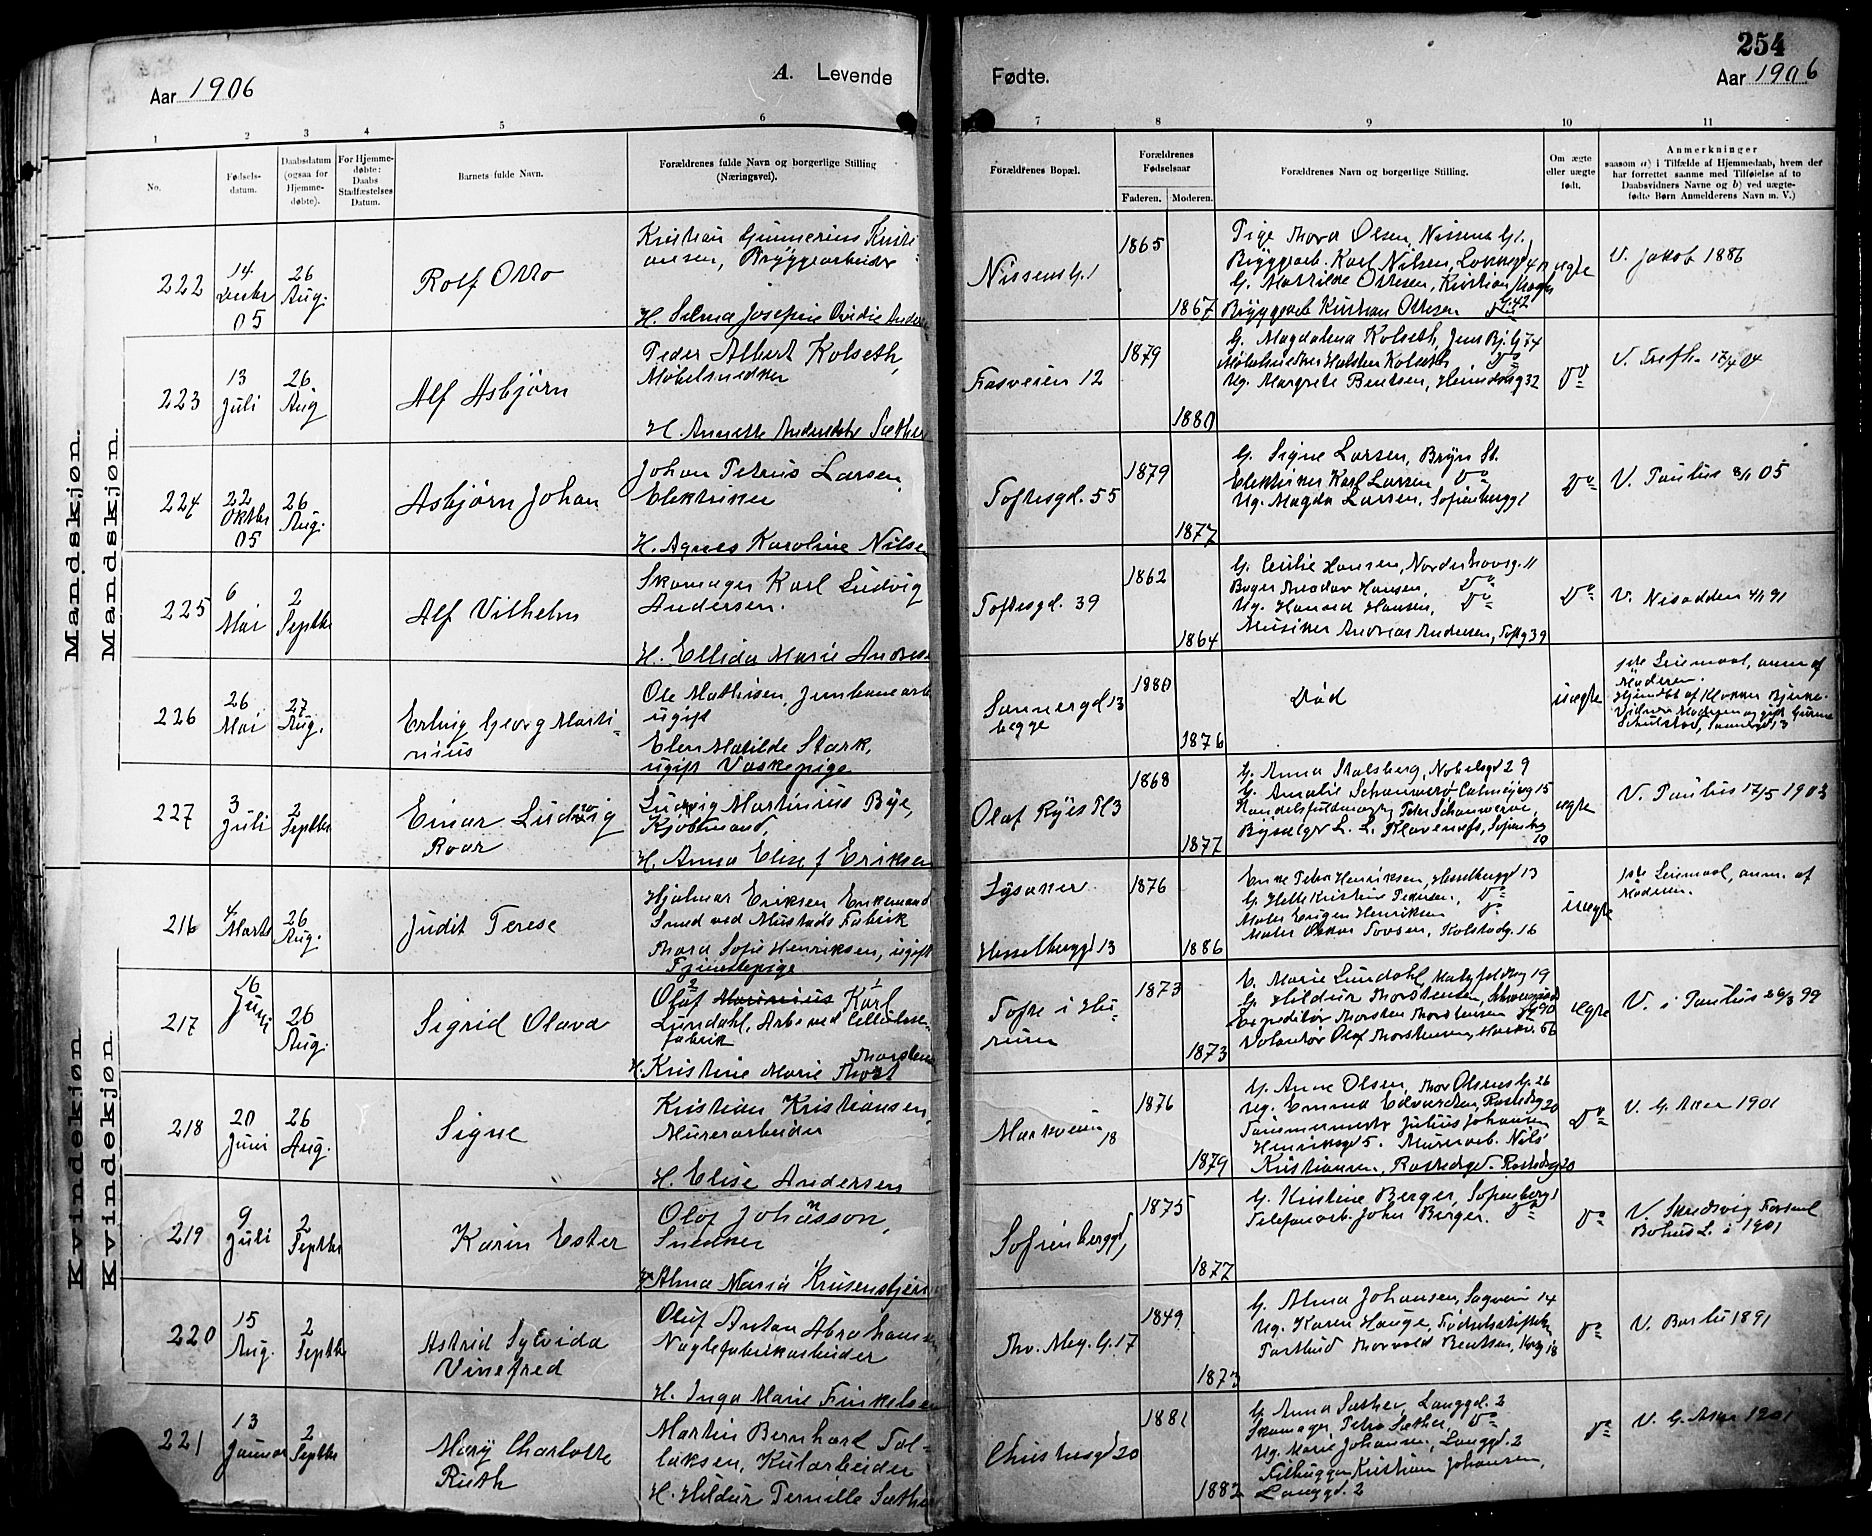 254
Aar 1906
A. Levende
Fødte.
Aar 1906
1 2 3 4 5 6 7 8 9 10 11
No.
Fødsels-
datum.
Daabsdatum
(ogsaa for
Hjemme-
døbte).
For Hjemme-
døbte:
Daabs
Stadfæstelses
Datum.
Barnets fulde Navn.
Forældrenes fulde Navn og borgerlige Stilling
(Næringsvei).
Forældrenes Bopæl.
Forældrenes
Fødselsaar
Faderen. Moderen.
Forældrenes Navn og borgerlige Stilling.
Om ægte
eller uægte
født.
Anmerkninger
saasom a) i Tilfælde af Hjemmedaab, hvem der
har forrettet samme med Tilføielse af to
Daabsvidners Navne og b) ved uægte-
fødte Børn Anmelderens Navn m. V.)
Mandskjøn.
Mandskjøn.
222
14
05
26
Aug.
Rolf Otto
Kristian Gunnerius Kristi-
ansen, Bryggearbeider
H. Selma Josefine Ovidie
Nissens G. 1
1865
1867
Pige Thora Olsen, Nissens G. 1.
Bryggearb. Karl Nilsen,
G. Mathilde Ottesen, Kristian
Bryggearb Kristian Ottesen
ægte
V. Jakob 1886
223
13
Juli
26
Aug
Alf Asbjørn
Peder Albert Kolseth,
Møbelsnedker
H. Annette Andersdtr Sæther
Fosveien 12
1879
1880
G. Magdalena Kolseth, Jens Bj. G. 74
Møbelsnedker Halsten Kolseth Do
Ug. Margrete Bentsen, 32
Do
V. Trefh. 17/4 04
224
22
Oktbr
05
26
Aug.
Asbjørn Johan
Johan Petrus Larsen,
Elektriker
H. Agnes Karoline Nilsen
Toftesgd. 55
1879
1877
G. Signe Larsen, Bryn St.
Elektriker Karl Larsen Do
Ug. Magda Larsen, Sofienbergg 1
Do
V. Paulus 8/1 05
225
6
Mai
2
Septbr
Alf Vilhelm
Skomager Karl Ludvig
Andersen.
H. Ellida Marie
Toftesgd. 39
1862
1864
G. Cecilie Hansen, Norderhovsg. 11
Bager Theodor Hansen, Do
Ug. Hansen, Do
Musiker Andreas Andersen, Toftg 39
Do
V. Nesodden 4/1 91
226
26
Mai
27
Aug.
Erling Georg Marti-
nius
Ole Mathisen, Jernbanearb
ugift
Elen Matilde Stark,
ugift Vaskepige
Sannergd 13
begge
1880
1876
Død
uægte
1ste Leiermaal, anm af
Moderen.
Hjemdbt af Klokker Bjerke.
Vidner Moderen og gift
Sannergd 13
227
3
Juli
2
Septbr
Einar Ludvig
Roar
Ludvig Martinius Bye,
Kjøbmand,
H. Anna Elise f Eriksen
Olaf Ryes Pl 3
1868
1877
G. Anna Stalsberg, Nobelsgd 29
G. Amalie Schanverø Calmeyerg 15
Handelsfuldmægtig Peder Schanverø,
L. L. Flavenæs, Sofienberg
19
ægte
V. Paulus 17/5 1903
Kvindekjøn
Kvindekjøn.
216
4
Marts
26
Aug.
Judit Terese
Hjalmar Eriksen Enkemand
Smed ved Mustads Fabrik
Thora Sofie Henriksen, ugift
Tjenestepige
Lysaker
Hesselberggd 13
1876
1886
Enke Petra Henriksen, Hesselberggd 13
G. Helle Kristine Pedersen, Do
Maler Eugen Henriksen Do
Maler Oskar Tovsen, Kolstadg. 16
uægte
1ste Leiermaal, anm. af
Moderen.
217
16
Juli
26
Aug.
Sigrid Olava
Olaf Marinius Karl
Lundahl, Arb ved Cellulose-
fabrik
Thorstens
H. Kristine Marie Thorst
Tofte i Hu-
rum
1873
1873
G. Marie Lundahl, 19
G. Hildur Thorstensen,
Expeditør Thorsten Thorstensen 90
Volontør Olaf Thorstensen, Markv. 56
ægte
V. i Paulus 26/3 99
218
20
Juni
26
Aug.
Signe
Kristian Kristiansen,
Murerarbeider
H. Elise Andersen
Markveien
18
1876
1879
G. Anne Olsen, Thor Olsens G. 26
Ug. Emma Edvardsen, 20
Julius Johansen
Henriksgd 5. Murerarb. Nils
Kristiansen, 20
Do
V. G. Aker 1901
219
9
Juli
2
Septbr
Karin Ester
Olof Johansson,
Snekker
H. Alma Maria
Sofienberggd,
1875
1877
G. Kristine Berger, Sofienbergg 1
Telefonarb. John Berger. Do
Do
V.
Bohus L. i 1901
220
15
Aug.
2
Septbr
Astrid Sylvida
Vinefred
Oluf Anton Abrahamsen,
Naglefabrikarbeider
H. Inga Marie Finkelsen
Thv. Mey. G. 17
1849
1873
G. Alma Johansen, Sagveien 14
Ug. Karen Hauge, Fødselsstiftelsen
Thorvald Bentsen, 18
Do
V. 1891
221
13
Januar
2
Septbr
Mary Charlotte
Ruth
Martin Bernhard Tol-
laksen, Kularbeider
H. Hildur Pernille Sæther
Christiesgd 20
1881
1882
G. Anna Sæther, Langgd. 2
Skomager Peter Sæther, Do
Ug. Marie Johansen, Langgd. 2
Filhugger Kristian Johansen,
Langgd. 2
Do
V. G. Aker 1901